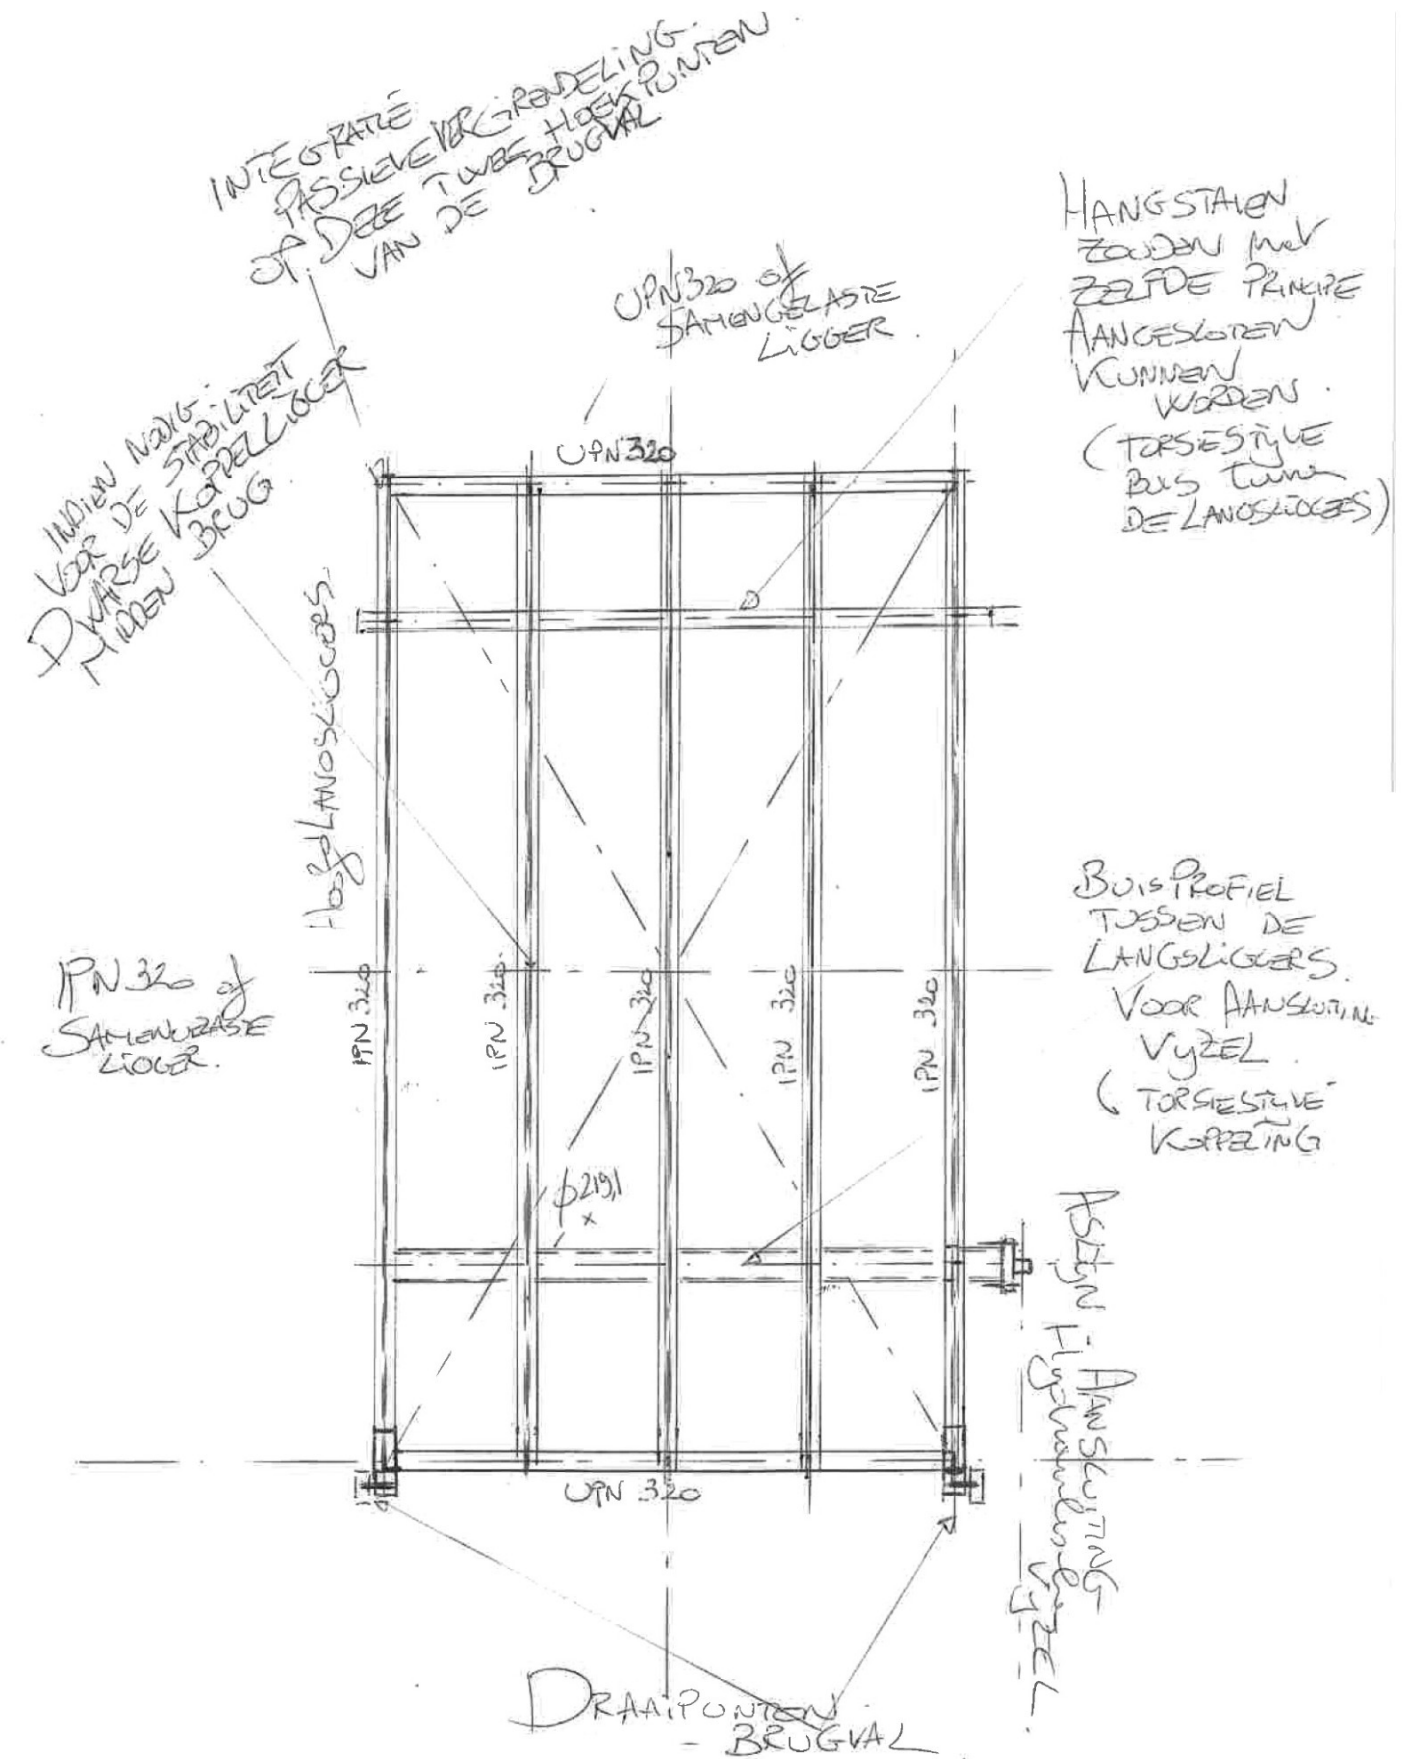 INTEGRATIE
PASSIEVE VERGRENDELING.
OP DEZE TWEE HOEKPUNTEN
VAN DE BRUGVAL
INDIEN NODIG.
VOOR DE STABILITEIT
DWARSE KOPPELLIGGER
MIDDEN BRUG.
UPN 320 of
SAMENGELASTE
LIGGER.
HANGSTALEN
ZOUDEN met
ZELFDE PRINCIPE
AANGESLOTEN
KUNNEN
WORDEN.
(TORSIESTIJVE
BUIS tussen
DE LANGSLIGGERS)
UPN 320
Hoofd LANGSLIGGERS.
IPN 320 of
SAMENGELASTE
LIGGER.
IPN 320
IPN 320.
IPN 320
IPN 320
IPN 320
BUISPROFIEL
TUSSEN DE
LANGSLIGGERS.
VOOR AANSLUITING
VIJZEL.
(TORSIESTIJVE
KOPPELING
ϕ219,1
x
ASLIJN - AANSLUITING
Hydraulische
VIJZEL.
UPN 320
DRAAIPUNTEN.
- BRUGVAL